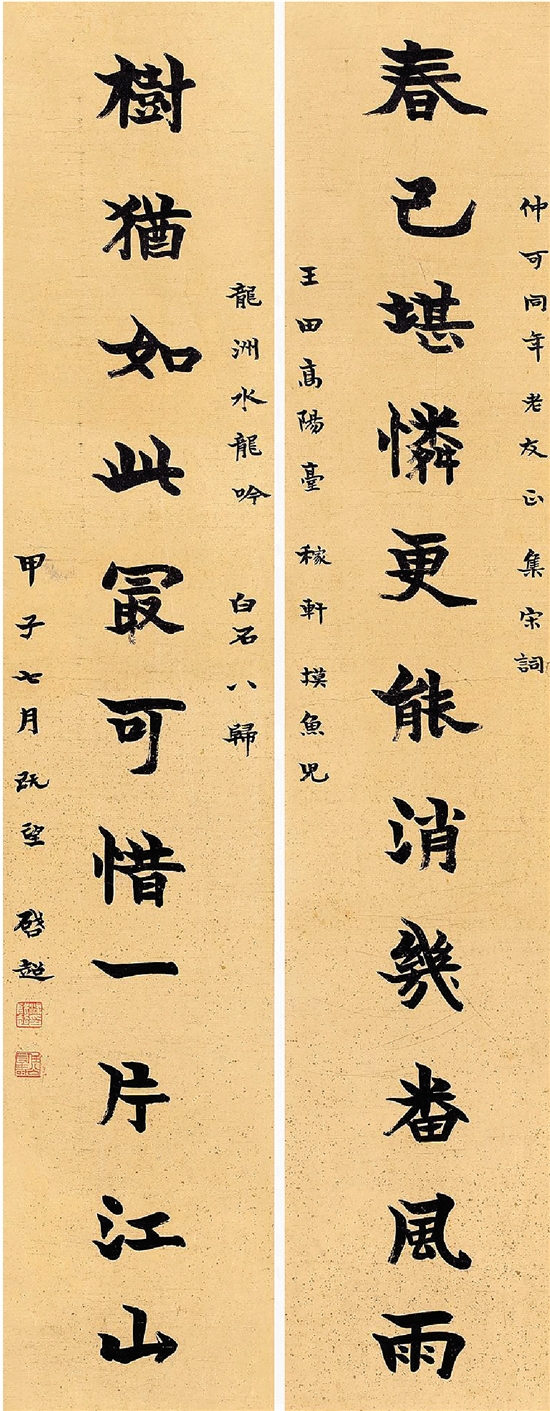 仲可同年老友正 集宋詞
春已堪憐更能消幾番風雨
玉田高陽臺 稼軒摸魚兒
龍洲水龍吟 白石八歸
樹猶如此最可惜一片江山
甲子七月既望 啓超